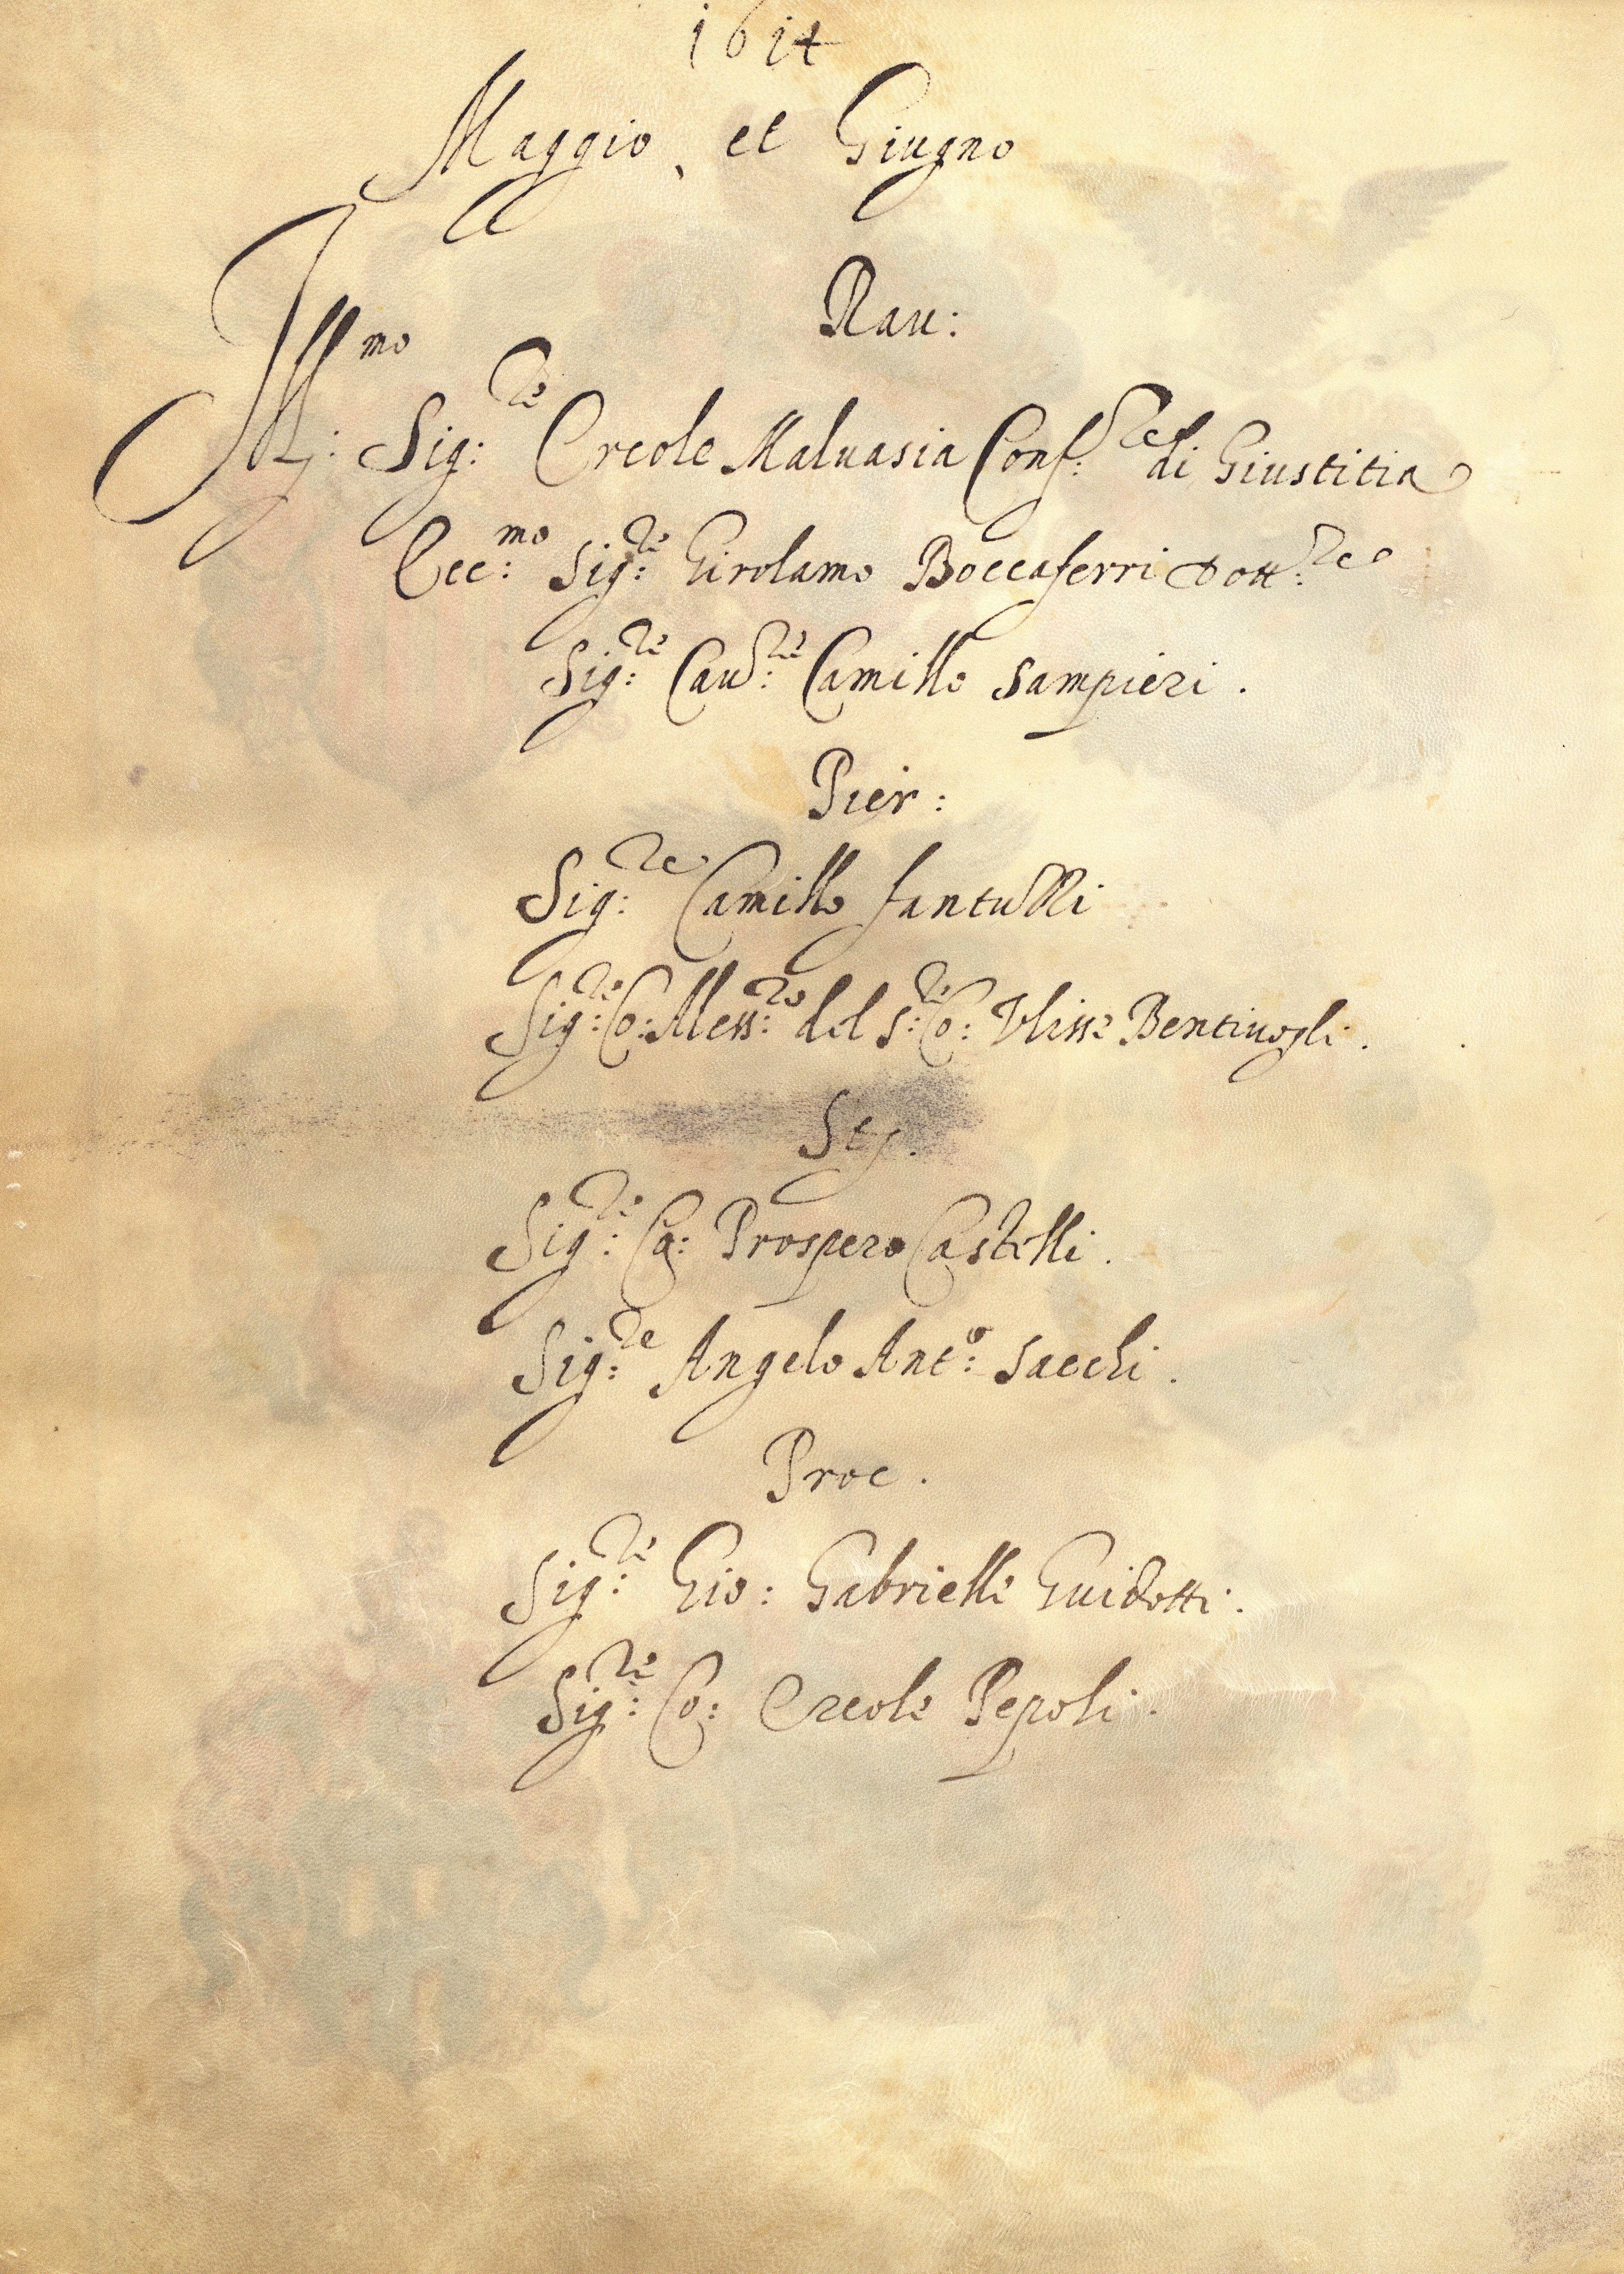 1614
Maggio, et Giugno
Rau:
Ill:mo Sig:re Ercole Maluasia Conf:re di Giustitia
Ecc:mo Sig:re Girolamo Boccaferri Dott:re
Sig:re Cau:re Camillo Sampieri.
Pier:
Sig:re Camillo fantuzzi
Sig:re Co: Aless:ro del S:r Co: Vlisse Bentiuogli.
Sty.
Sig:re Ca: Prospero Castelli.
Sig:re Angelo Ant:o Sacchi.
Proc.
Sig:re Gio: Gabrielle Guidotti.
Sig:re Co: Ercole Pepoli.